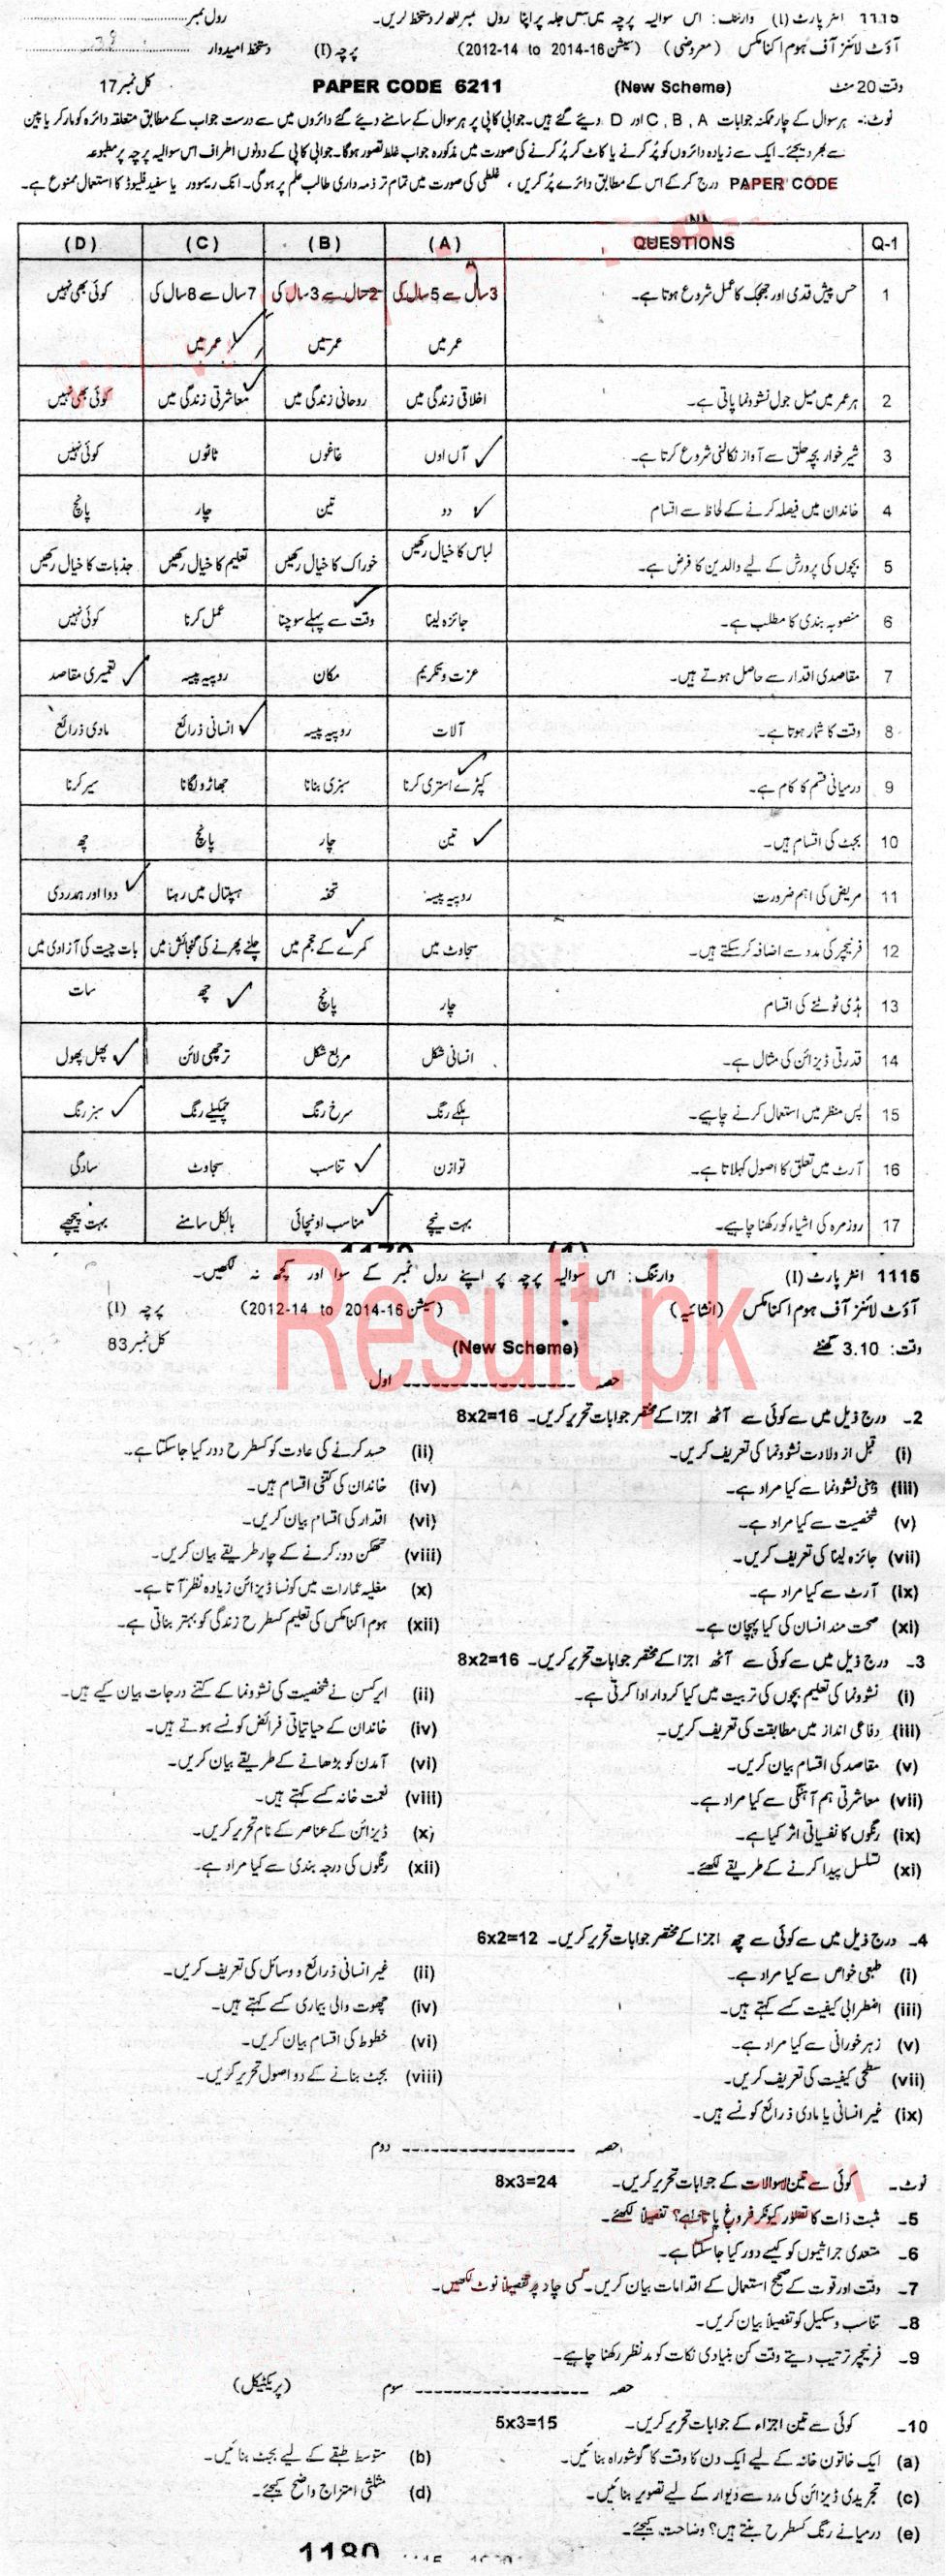 1115 انٹر پارٹ (I) وارننگ: اس سوالیہ پرچہ میں جس جگہ پر اپنا رول نمبر لکھ کر دستخط کریں۔ رول نمبر
آؤٹ لائنز آف ہوم اکنامکس (معروضی) (سیشن 16-2014 to 14-2012) پرچہ (I) دستخط امیدوار
وقت 20 منٹ (New Scheme) PAPER CODE 6211 کل نمبر 17
نوٹ:- ہر سوال کے چار ممکنہ جوابات A ,B ,C اور D دیئے گئے ہیں۔ جوابی کاپی پر ہر سوال کے سامنے دیئے گئے دائروں میں سے درست جواب کے مطابق متعلقہ دائرہ کو مارکر یا پین
سے بھر دیجئے۔ ایک سے زیادہ دائروں کو پُر کرنے یا کاٹ کر پُر کرنے کی صورت میں مذکورہ جواب غلط تصور ہوگا۔ جوابی کاپی کے دونوں اطراف اس سوالیہ پرچہ پر مطبوعہ
PAPER CODE درج کر کے اس کے مطابق دائرے پُر کریں ، غلطی کی صورت میں تمام تر ذمہ داری طالب علم پر ہوگی۔ انک ریموور یا سفید فلیوڈ کا استعمال ممنوع ہے۔
Q-1 QUESTIONS (A) (B) (C) (D)
1 حس پیش قدمی اور جھجک کا عمل شروع ہوتا ہے۔ 3 سال سے 5 سال کی عمر میں 2 سال سے 3 سال کی عمر میں 7 سال سے 8 سال کی عمر میں کوئی بھی نہیں
2 ہر عمر میں میل جول نشوونما پاتی ہے۔ اخلاقی زندگی میں روحانی زندگی میں معاشرتی زندگی میں کوئی بھی نہیں
3 شیر خوار بچہ حلق سے آواز نکالنی شروع کرتا ہے۔ آں اوں غاغوں ٹاٹوں کوئی نہیں
4 خاندان میں فیصلہ کرنے کے لحاظ سے اقسام دو تین چار پانچ
5 بچوں کی پرورش کے لیے والدین کا فرض ہے۔ لباس کا خیال رکھیں خوراک کا خیال رکھیں تعلیم کا خیال رکھیں جذبات کا خیال رکھیں
6 منصوبہ بندی کا مطلب ہے۔ جائزہ لینا وقت سے پہلے سوچنا عمل کرنا کوئی نہیں
7 مقاصدی اقدار سے حاصل ہوتے ہیں۔ عزت و تکریم مکان روپیہ پیسہ تعمیری مقاصد
8 وقت کا شمار ہوتا ہے۔ آلات روپیہ پیسہ انسانی ذرائع مادی ذرائع
9 درمیانی قسم کا کام ہے۔ کپڑے استری کرنا سبزی بنانا جھاڑو لگانا سیر کرنا
10 بجٹ کی اقسام ہیں۔ تین چار پانچ چھ
11 مریض کی اہم ضرورت روپیہ پیسہ تحفہ ہسپتال میں رہنا دوا اور ہمدردی
12 فرنیچر کی مدد سے اضافہ کر سکتے ہیں۔ سجاوٹ میں کمرے کے حجم میں چلنے پھرنے کی گنجائش میں بات چیت کی آزادی میں
13 ہڈی ٹوٹنے کی اقسام چار پانچ چھ سات
14 قدرتی ڈیزائن کی مثال ہے۔ انسانی شکل مربع شکل ترچھی لائن پھل پھول
15 پس منظر میں استعمال کرنے چاہیے۔ ہلکے رنگ سرخ رنگ چمکیلے رنگ سبز رنگ
16 آرٹ میں تعلق کا اصول کہلاتا ہے۔ توازن تناسب سجاوٹ سادگی
17 روزمرہ کی اشیاء کو رکھنا چاہیے۔ بہت نیچے مناسب اونچائی بالکل سامنے بہت پیچھے
Result.pk
1115 انٹر پارٹ (I) وارننگ: اس سوالیہ پرچہ پر اپنے رول نمبر کے سوا اور کچھ نہ لکھیں۔
آؤٹ لائنز آف ہوم اکنامکس (انشائیہ) (سیشن 16-2014 to 14-2012) پرچہ (I)
وقت: 3.10 گھنٹے (New Scheme) کل نمبر 83
حصہ ------------------ اول
2۔ درج ذیل میں سے کوئی سے آٹھ اجزا کے مختصر جوابات تحریر کریں۔ 8x2=16
(i) قبل از ولادت نشوونما کی تعریف کریں۔ (ii) حسد کرنے کی عادت کو کسطرح دور کیا جاسکتا ہے۔
(iii) ذہنی نشوونما سے کیا مراد ہے۔ (iv) خاندان کی کتنی اقسام ہیں۔
(v) شخصیت سے کیا مراد ہے۔ (vi) اقدار کی اقسام بیان کریں۔
(vii) جائزہ لینا کی تعریف کریں۔ (viii) تھکن دور کرنے کے چار طریقے بیان کریں۔
(ix) آرٹ سے کیا مراد ہے۔ (x) مغلیہ عمارات میں کونسا ڈیزائن زیادہ نظر آتا ہے۔
(xi) صحت مند انسان کی کیا پہچان ہے۔ (xii) ہوم اکنامکس کی تعلیم کسطرح زندگی کو بہتر بناتی ہے۔
3۔ درج ذیل میں سے کوئی سے آٹھ اجزا کے مختصر جوابات تحریر کریں۔ 8x2=16
(i) نشوونما کی تعلیم بچوں کی تربیت میں کیا کردار ادا کرتی ہے۔ (ii) ایرکسن نے شخصیت کی نشوونما کے کتنے درجات بیان کیے ہیں۔
(iii) دفاعی انداز میں مطابقت کی تعریف کریں۔ (iv) خاندان کے حیاتیاتی فرائض کونسے ہوتے ہیں۔
(v) مقاصد کی اقسام بیان کریں۔ (vi) آمدن کو بڑھانے کے طریقے بیان کریں۔
(vii) معاشرتی ہم آہنگی سے کیا مراد ہے۔ (viii) نعمت خانہ کسے کہتے ہیں۔
(ix) رنگوں کا نفسیاتی اثر کیا ہے۔ (x) ڈیزائن کے عناصر کے نام تحریر کریں۔
(xi) تسلسل پیدا کرنے کے طریقے لکھئے۔ (xii) رنگوں کی درجہ بندی سے کیا مراد ہے۔
4۔ درج ذیل میں سے کوئی سے چھ اجزا کے مختصر جوابات تحریر کریں۔ 6x2=12
(i) طبعی خواص سے کیا مراد ہے۔ (ii) غیر انسانی ذرائع و وسائل کی تعریف کریں۔
(iii) اضطرابی کیفیت کسے کہتے ہیں۔ (iv) چھوت والی بیماری کسے کہتے ہیں۔
(v) زہر خورانی سے کیا مراد ہے۔ (vi) خطوط کی اقسام بیان کریں۔
(vii) سطحی کیفیت کی تعریف کریں۔ (viii) بجٹ بنانے کے دو اصول تحریر کریں۔
(ix) غیر انسانی یا مادی ذرائع کونسے ہیں۔
حصہ ------------------ دوم
نوٹ۔ کوئی سے تین سوالات کے جوابات تحریر کریں۔ 8x3=24
5۔ مثبت ذات کا تصور کیونکر فروغ پاتا ہے؟ تفصیلاً لکھئے۔
6۔ متعدی جراثیموں کو کیسے دور کیا جاسکتا ہے۔
7۔ وقت اور قوت کے صحیح استعمال کے اقدامات بیان کریں۔ کسی چار پر تفصیلاً نوٹ لکھیں۔
8۔ تناسب و سکیل کو تفصیلاً بیان کریں۔
9۔ فرنیچر ترتیب دیتے وقت کن بنیادی نکات کو مدنظر رکھنا چاہیے۔
حصہ ------------------ سوم (پریکٹیکل)
10۔ کوئی سے تین اجزاء کے جوابات تحریر کریں۔ 5x3=15
(a) ایک خاتون خانہ کے لیے ایک دن کا وقت کا گوشوارہ بنائیں۔ (b) متوسط طبقے کے لیے بجٹ بنائیں۔
(c) تجریدی ڈیزائن کی مدد سے دیوار کے لیے تصویر بنائیں۔ (d) مثلثی امتزاج واضح کیجئے۔
(e) درمیانے رنگ کسطرح بنتے ہیں؟ وضاحت کیجئے۔
1180